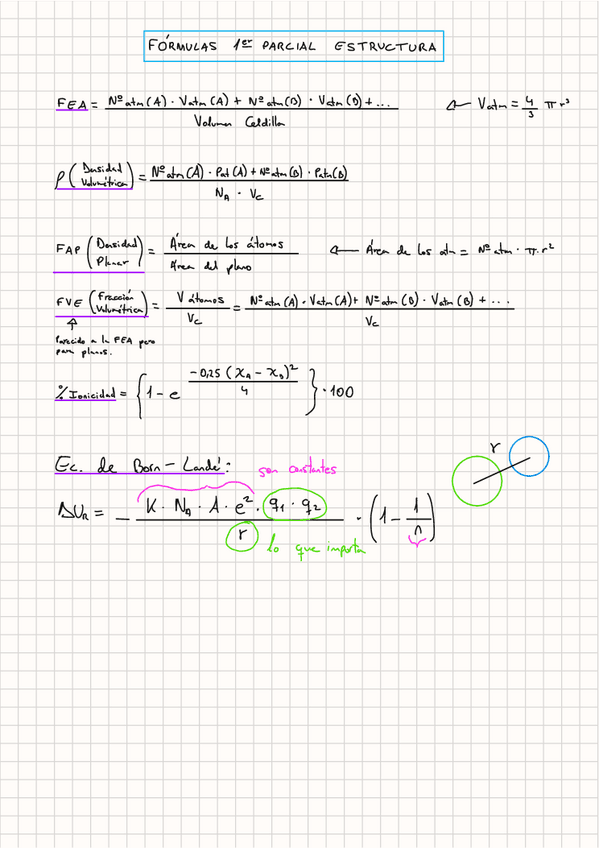 FÓRMULAS 1er PARCIAL ESTRUCTURA
FEA = (Nº atm (A) · Vatm (A) + Nº atm (B) · Vatm (B) + ...) / Volumen Celdilla ← Vatm = 4/3 π r³
ρ (Densidad Volumétrica) = (Nº atm (A) · Pat (A) + Nº atm (B) · Patm (B)) / (NA · Vc)
FAP (Densidad Planar) = Área de los átomos / Área del plano ← Área de los atm = Nº atm · π · r²
FVE (Fracción Volumétrica) = V átomos / Vc = (Nº atm (A) · Vatm (A) + Nº atm (B) · Vatm (B) + ...) / Vc
Parecido a la FEA pero
para planos.
% Ionicidad = {1 - e^(-0,25 (XA - XB)² / 4)} · 100
Ec. de Born - Landé: son constantes
ΔUR = - (K · NA · A · e² · q1 · q2) / r · (1 - 1/n)
lo que importa
r